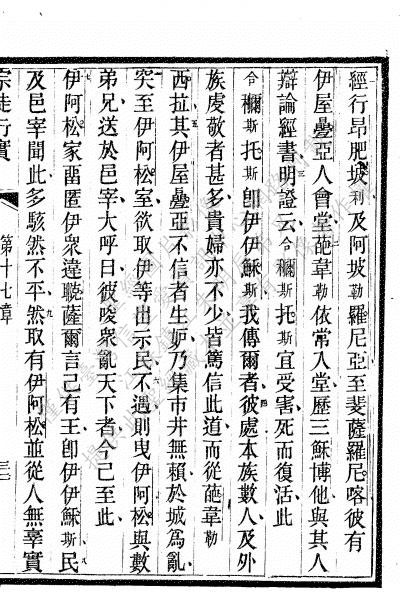 經行昂肥坡利及阿坡勒羅尼亞至斐薩羅尼喀彼有
伊屋疊亞人會堂葩韋勒依常入堂歷三穌博他與其人
辯論經書明證云合禰斯托斯宜受害死而復活此
合禰斯托斯卽伊伊穌斯我傳爾者彼處本族數人及外
族虔敬者甚多貴婦亦不少皆篤信此道而從葩韋勒
西拉其伊屋疊亞不信者生妒乃集市井無賴於城爲亂
突至伊阿松室欲取伊等出示民不遇則曳伊阿松與數
弟兄送於邑宰大呼曰彼唆衆亂天下者今己至此
伊阿松家畱匿伊衆違薩爾言己有王卽伊伊穌斯民
及邑宰聞此多駭然不平然取有伊阿松並從人無辜實
宗徒行實 第十七章